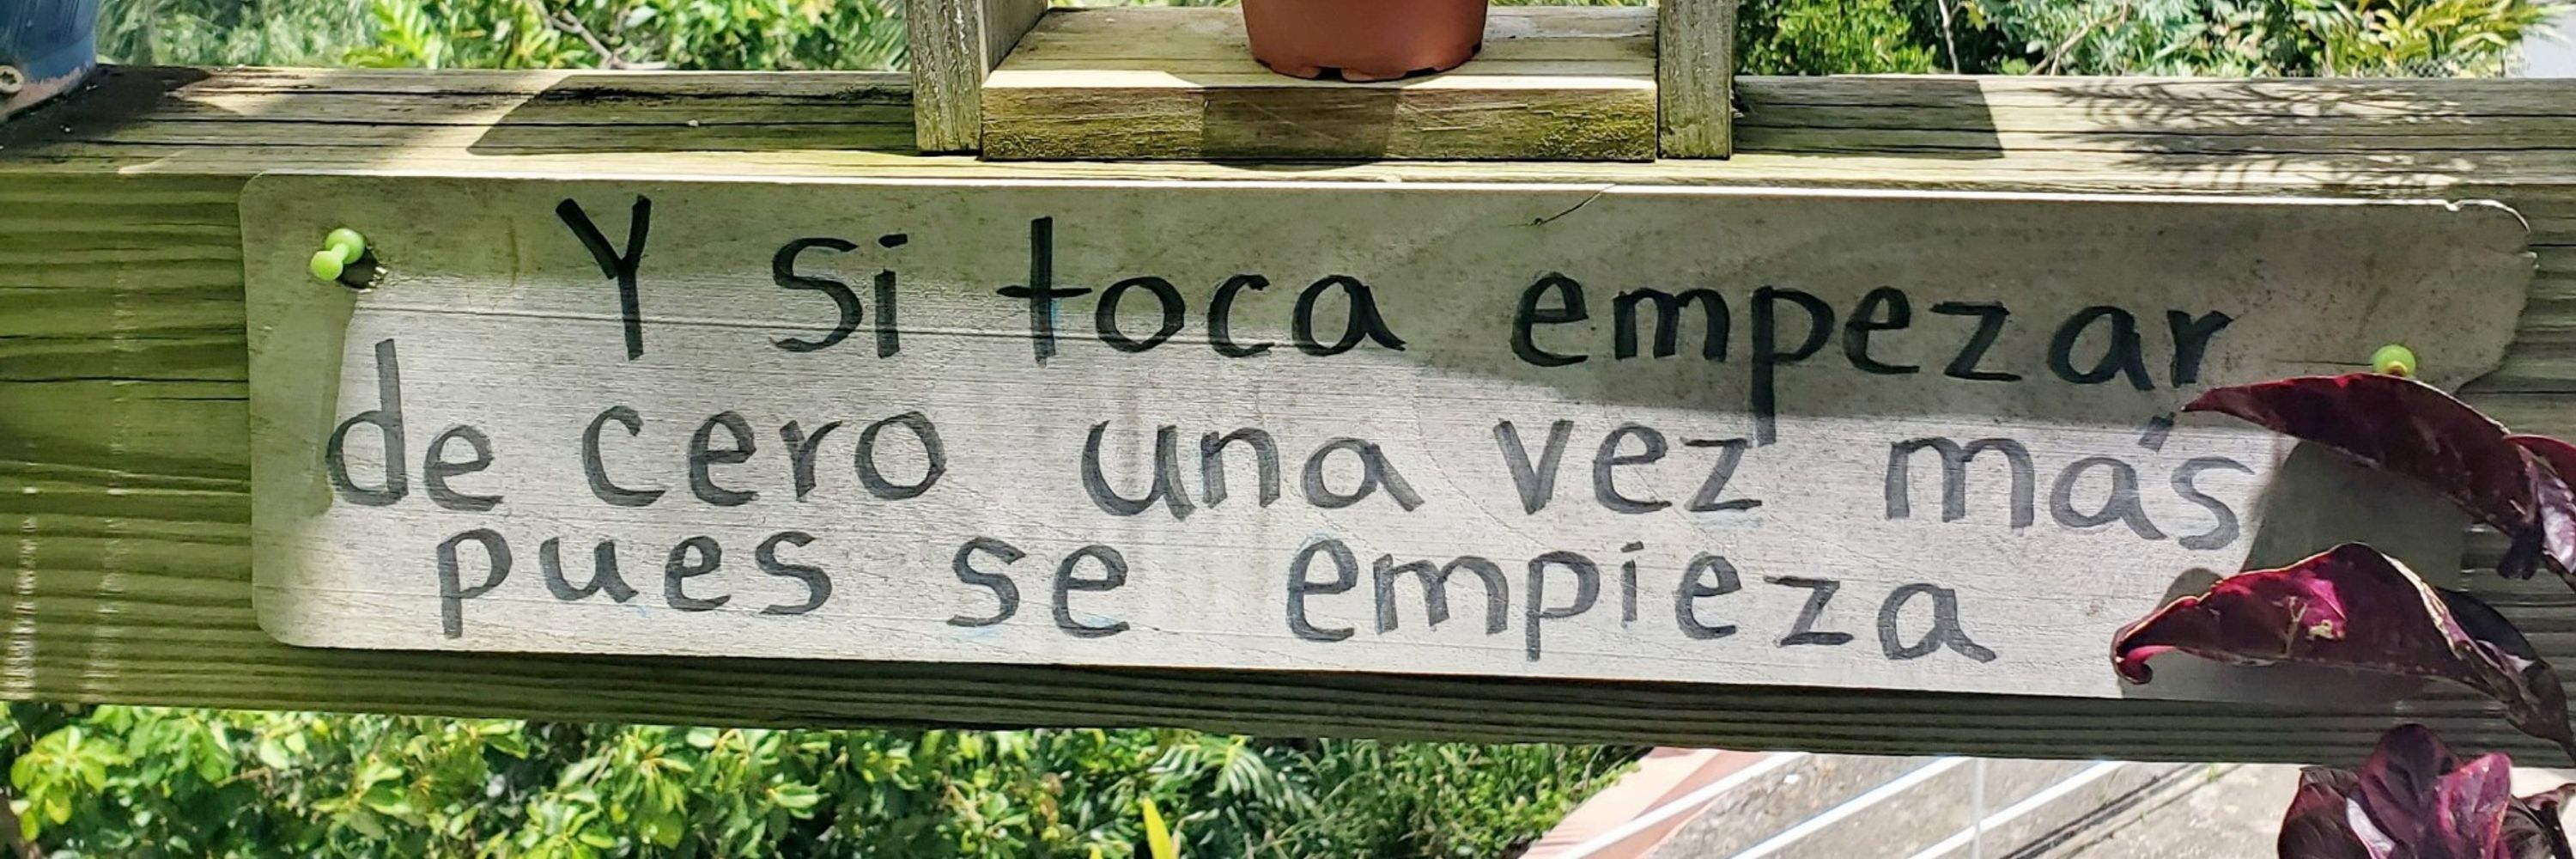 Y si toca empezar
de cero una vez más
pues se empieza